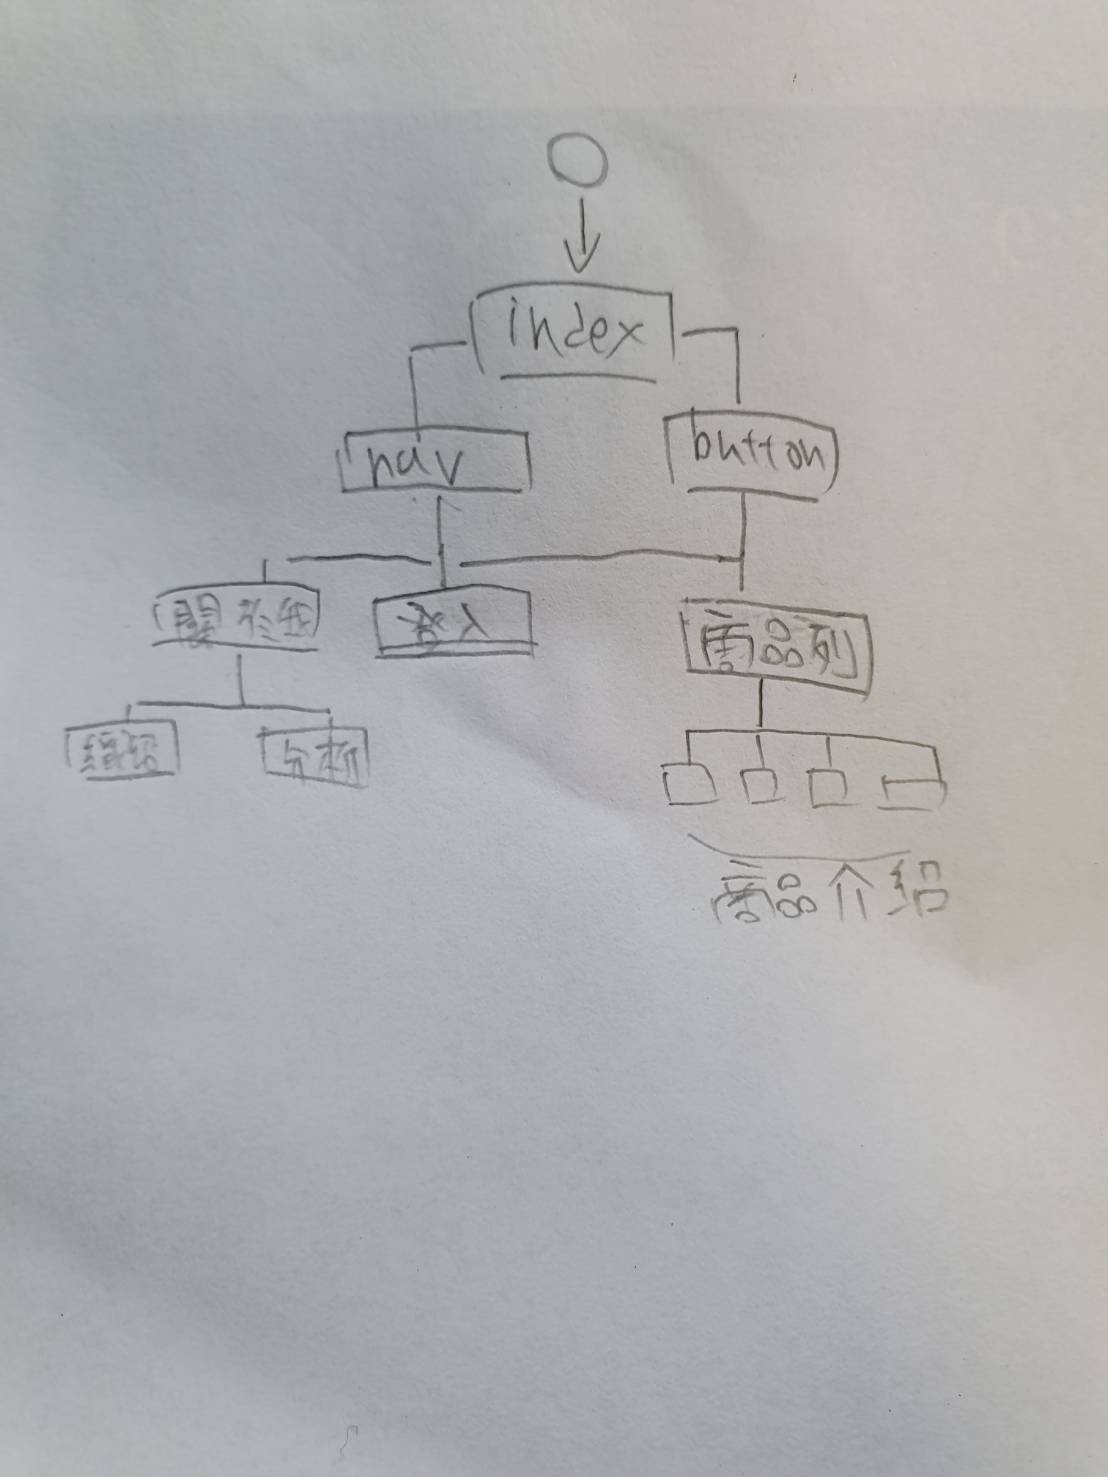 index
nav
button
登入
商品列
分析
商品介紹